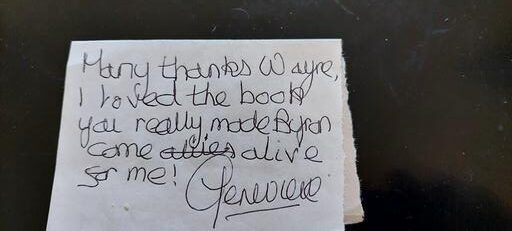 Many thanks Wayne,
I loved the book
you really made Byron
come alive
for me! Genevieve